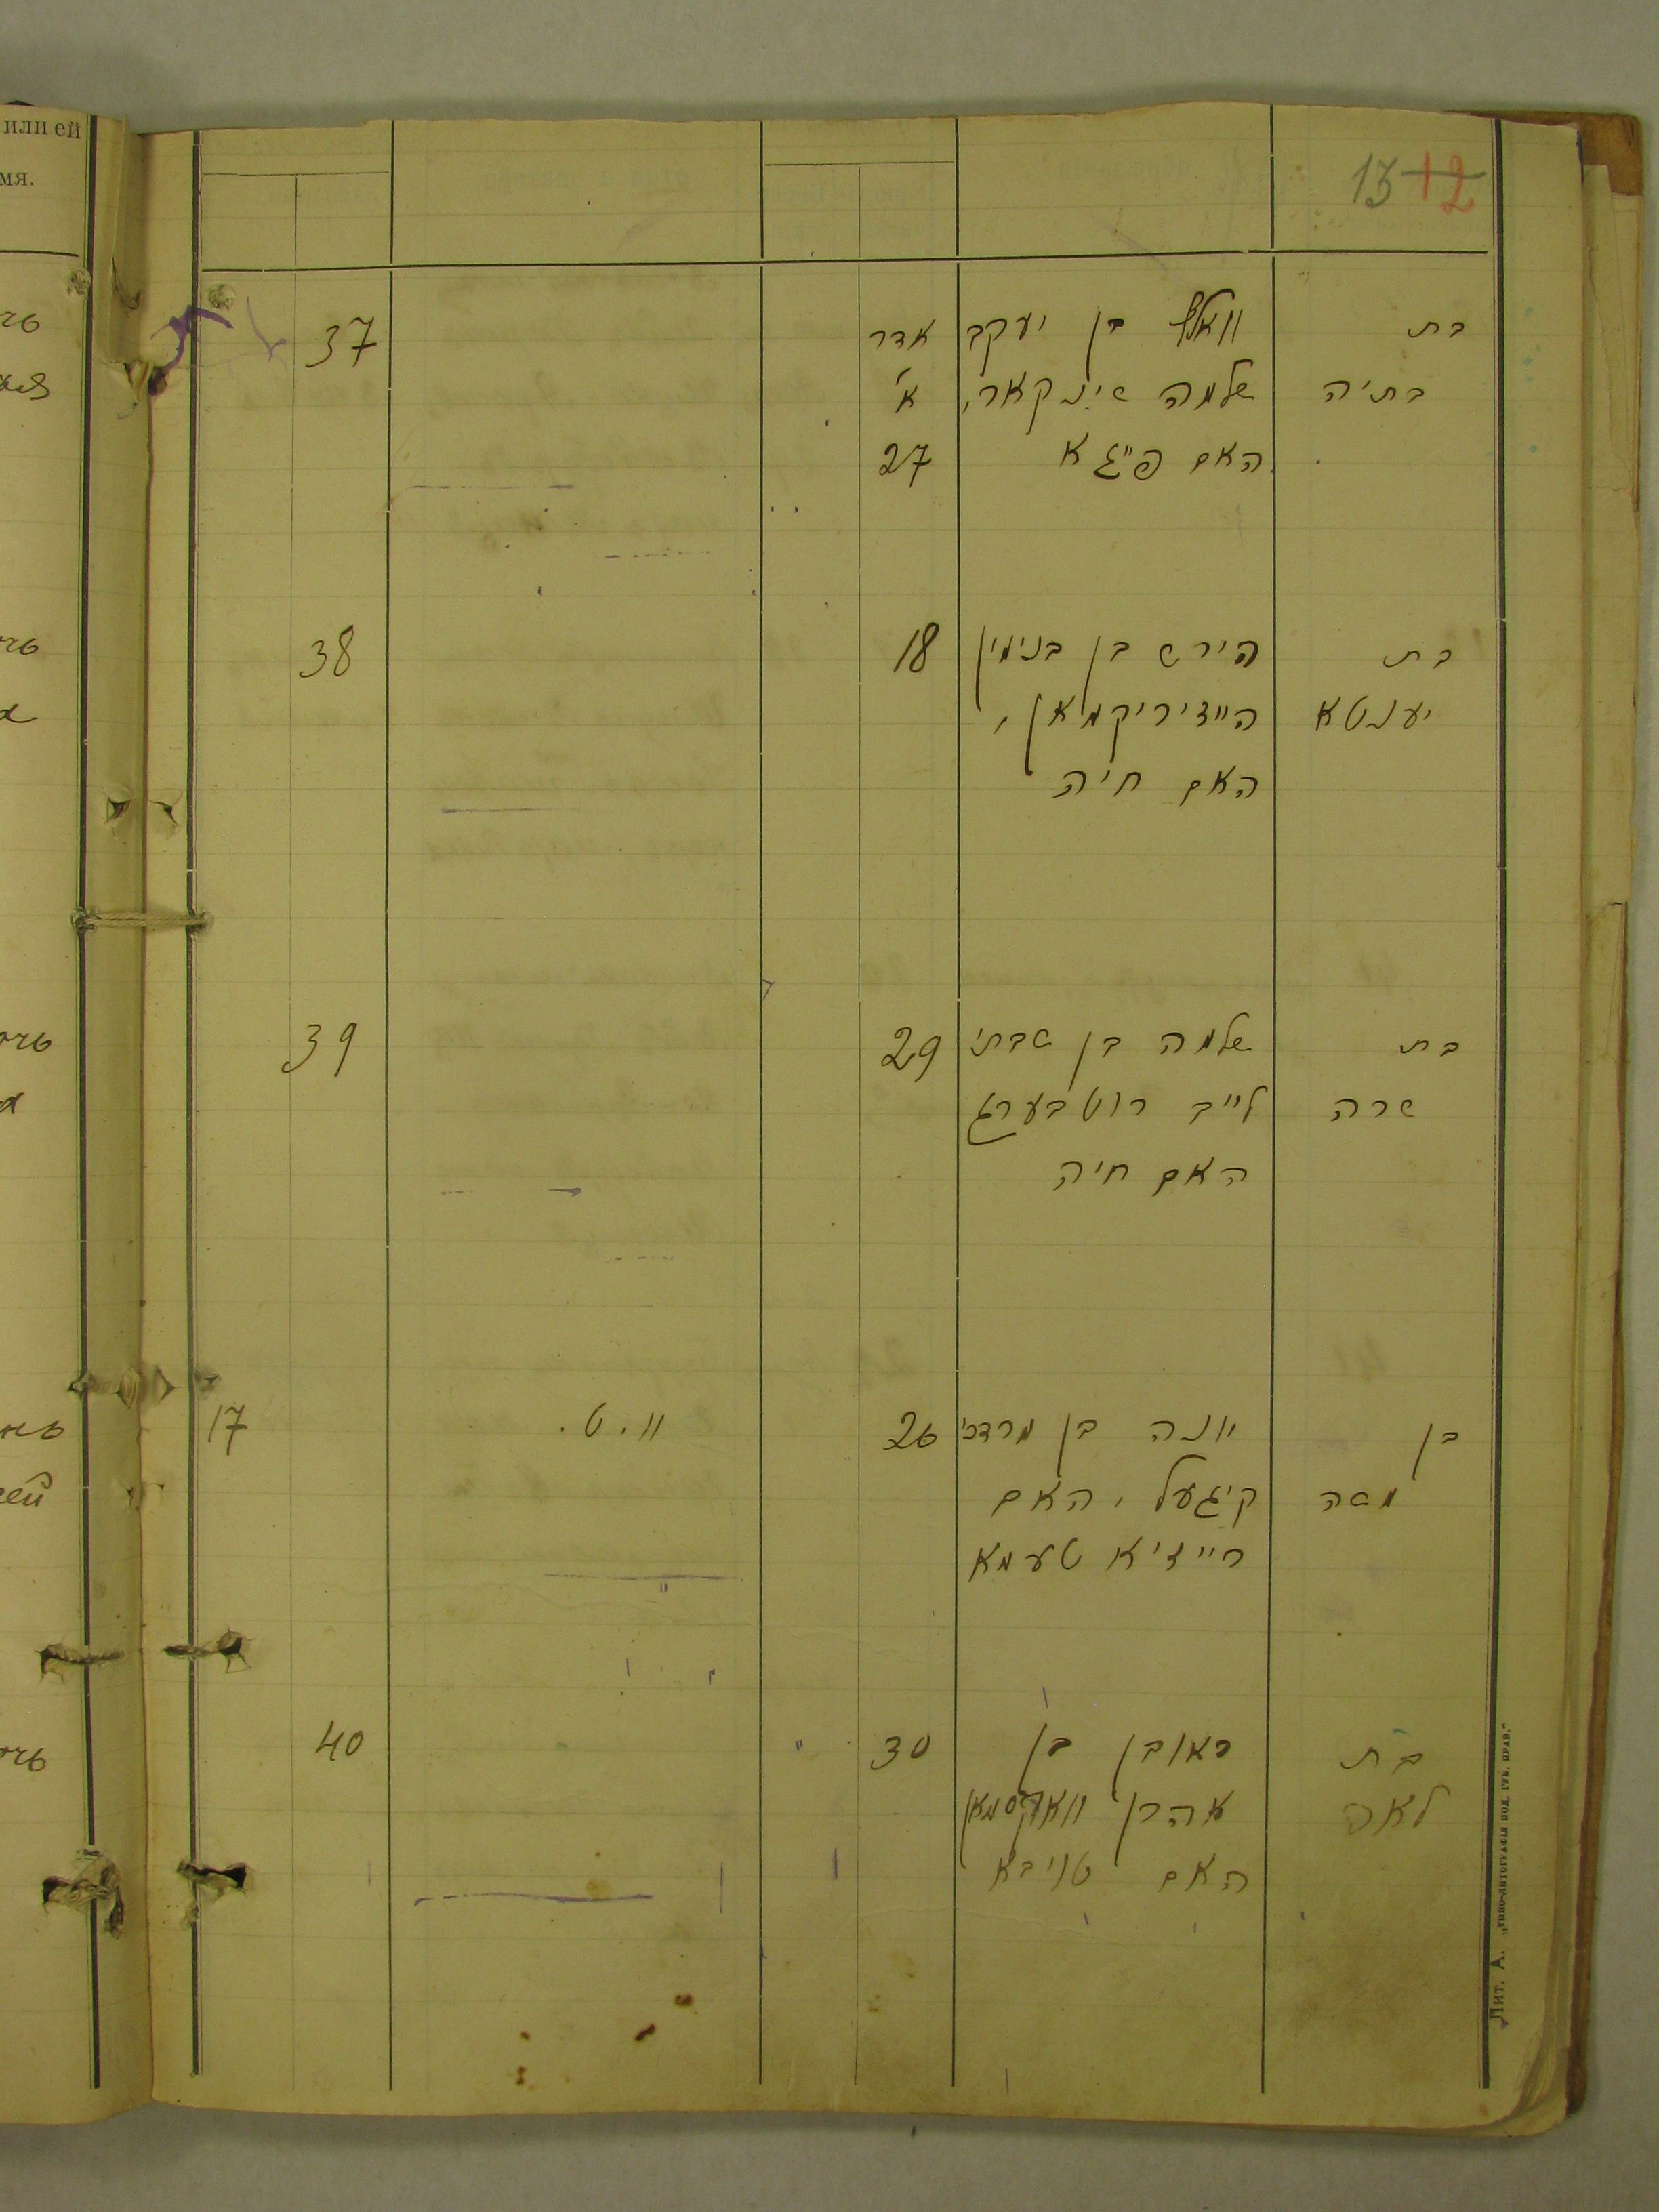 или ей
мя.
13 12
בת וואלף בן יעקב אדר 37
בתיה שלמה שינקאר, א'
האם פייגא 27
בת הירש בן בנימין 18 38
יענטא היידיריקמאן,
האם חיה
בת שלמה בן שבתי 29 39
שרה לייב רוטבערג
האם חיה
בן יונה בן מרדכי 26 וו. ט. 17
משה קיגעל, האם
רייזיא טעמא
בת ראובן בן 30 " 40
לאה אהרן וואקסמאן
האם טויבא
Лит. А. „Типо-литография под. губ. прав."